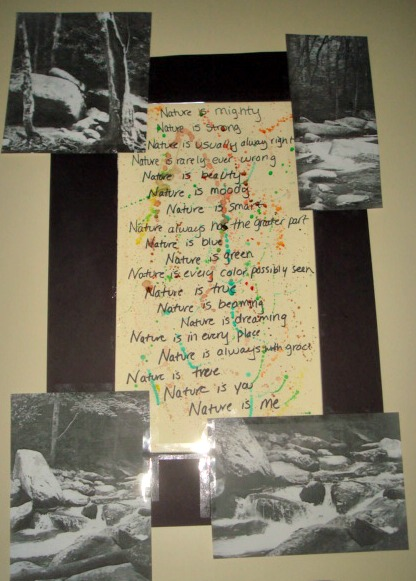 Nature is mighty
Nature is strong
Nature is usually alway right
Nature is rarely ever wrong
Nature is beauty
Nature is moody
Nature is smart
Nature always has the greater part
Nature is blue
Nature is green
Nature is every color possibly seen
Nature is true
Nature is beaming
Nature is dreaming
Nature is in every place
Nature is always with grace
Nature is
Nature is you
Nature is me